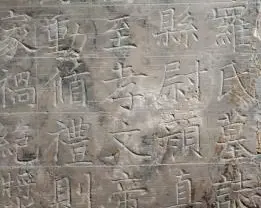 羅氏墓誌
縣尉顏真
至孝文帝
動循禮則
家禍絕漿